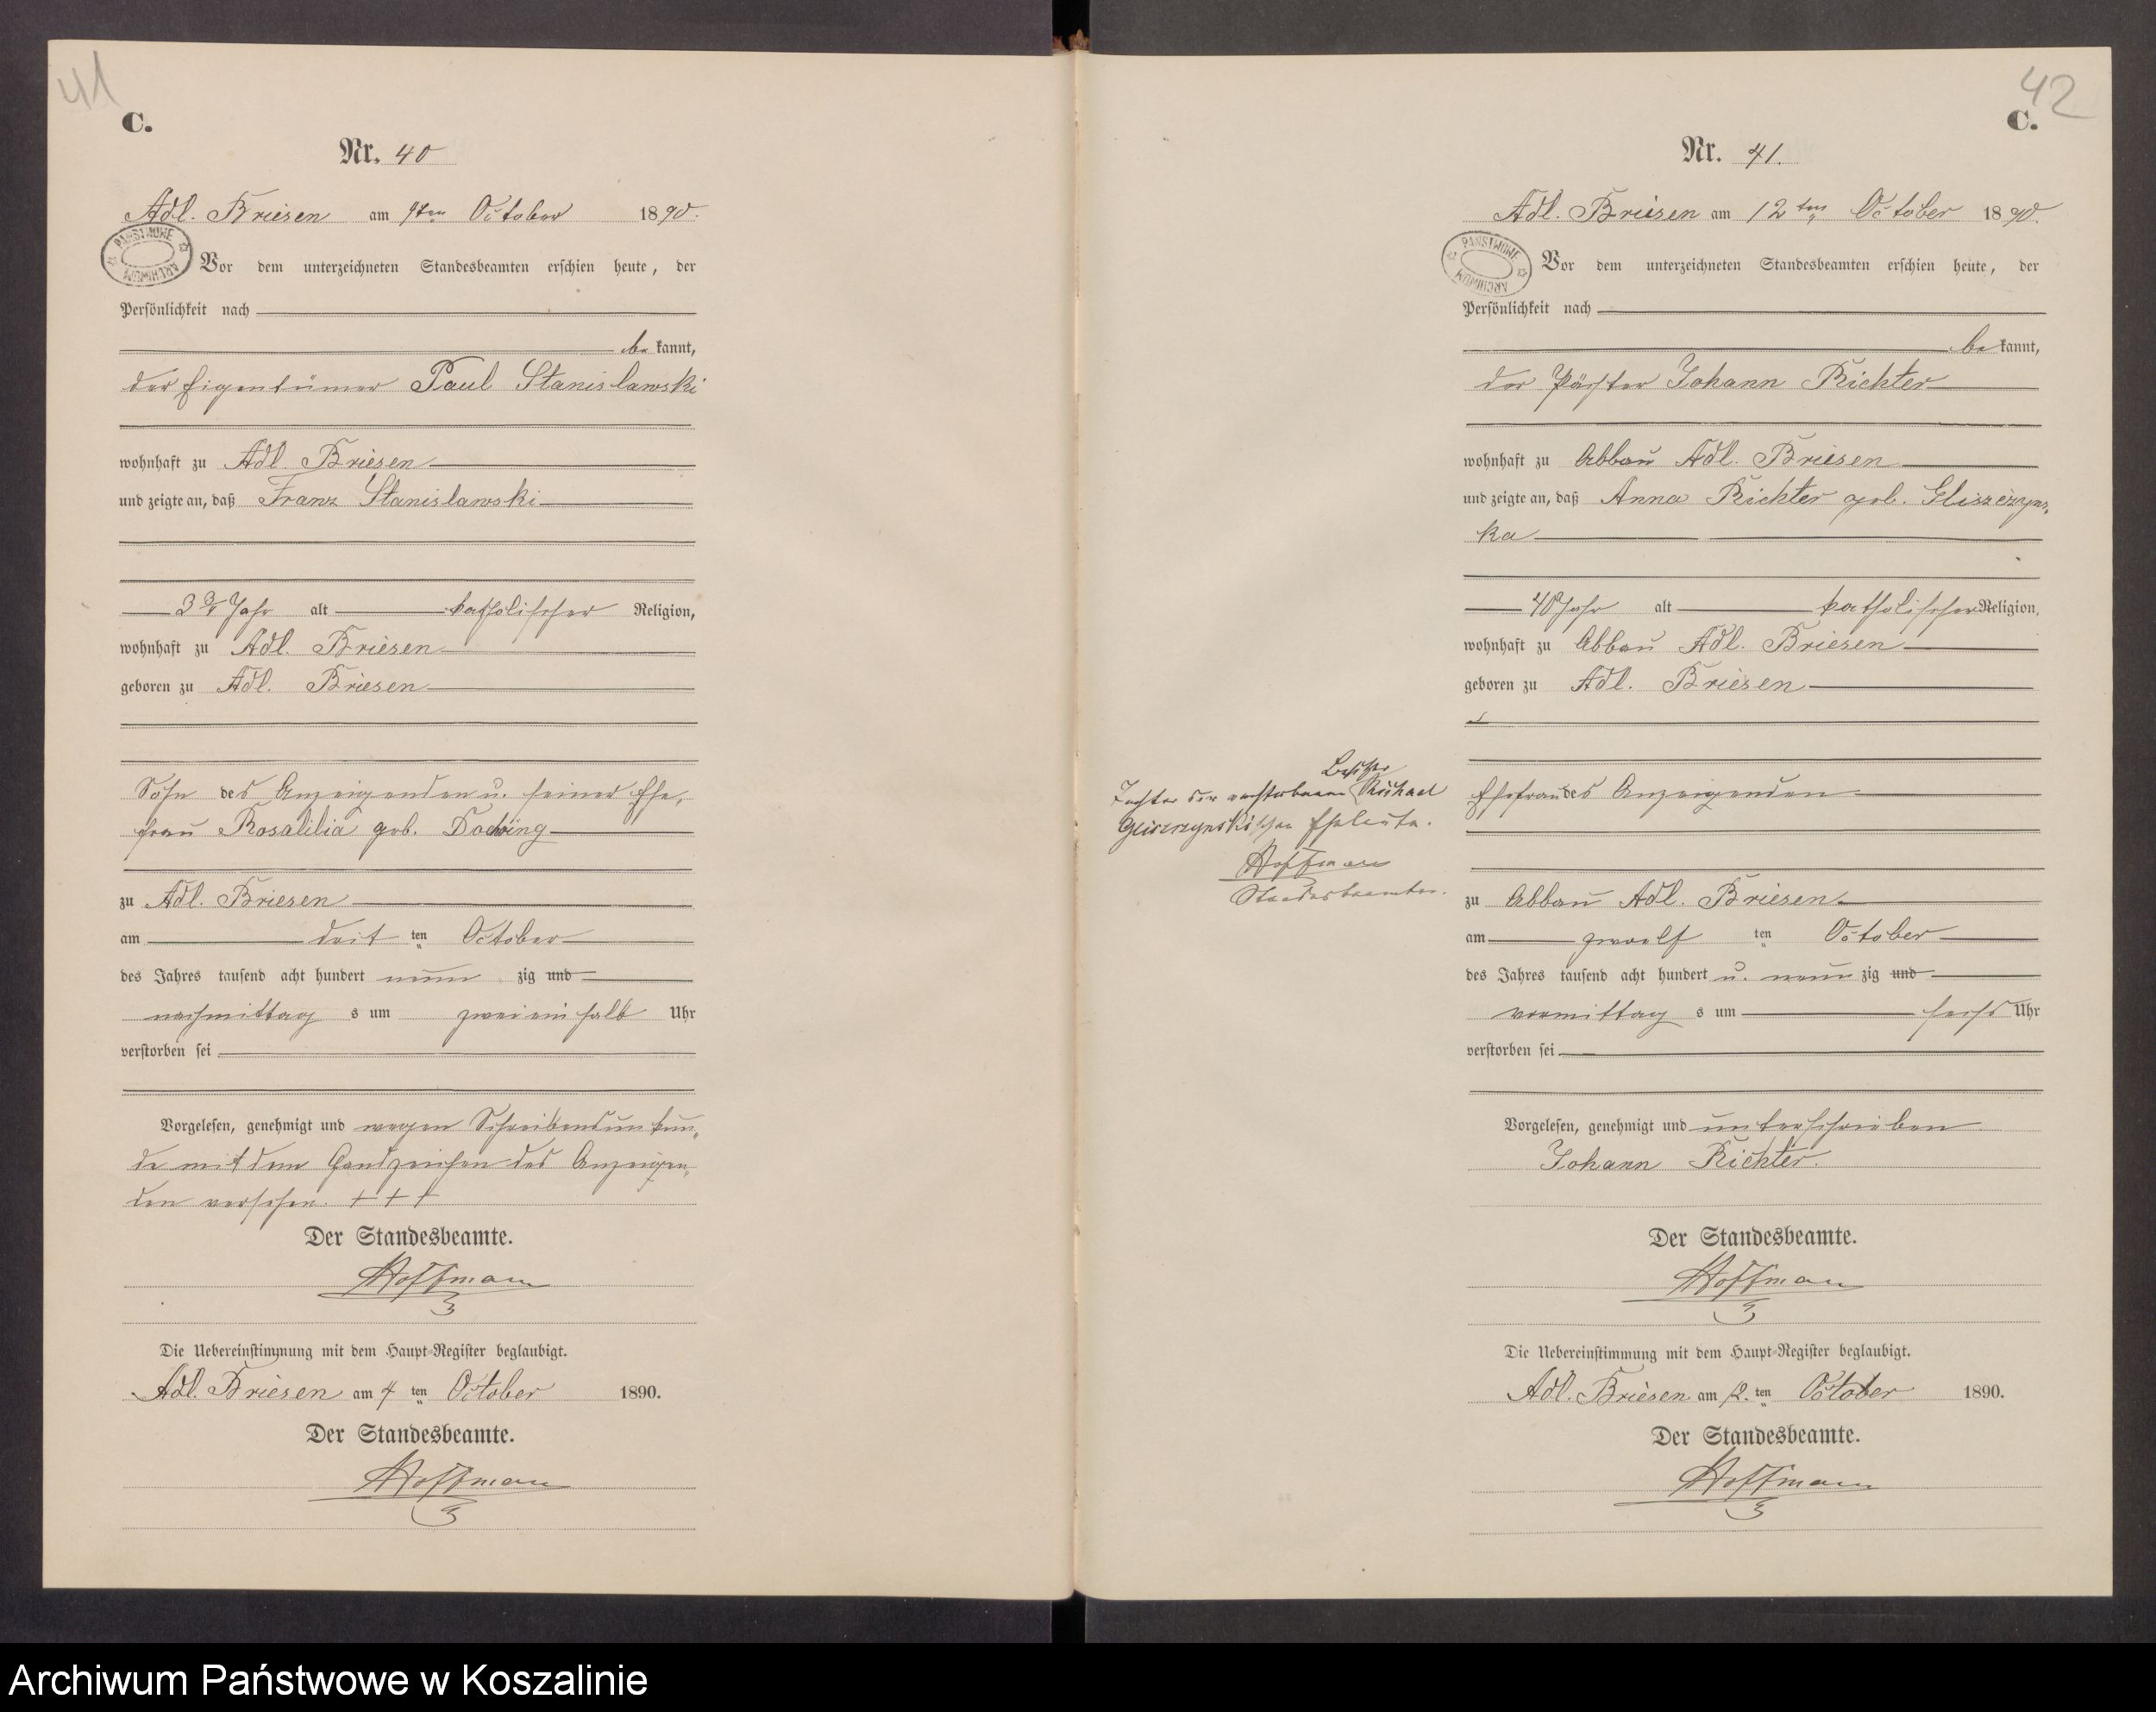 41
C.
Nr. 40
Adl. Briesen am 4ten October 1890.
PAŃSTWOWE ARCHIWUM
Vor dem unterzeichneten Standesbeamten erschien heute, der
Persönlichkeit nach
be kannt,
der Eigentümer Paul Stanislawski
wohnhaft zu Adl. Briesen
und zeigte an, daß Franz Stanislawski
3 3/4 Jahr alt katholischer Religion,
wohnhaft zu Adl. Briesen
geboren zu Adl. Briesen
Sohn des Anzeigenden u. seiner Ehe,
frau Rosalilia geb.
zu Adl. Briesen
am drit ten October
des Jahres tausend acht hundert neun zig und
nachmittag s um zwei ein halb Uhr
verstorben sei
Vorgelesen, genehmigt und wegen Schreibensunkun,
de mit dem Handzeichen des Anzeigen,
den versehen. + + +
Der Standesbeamte.
Hoffmann
Die Uebereinstimmung mit dem Haupt-Register beglaubigt.
Adl. Briesen am 4 ten October 1890.
Der Standesbeamte.
Hoffmann
42
C.
Nr. 41.
Adl. Briesen am 12ten October 1890.
PAŃSTWOWE ARCHIWUM
Vor dem unterzeichneten Standesbeamten erschien heute, der
Persönlichkeit nach
be kannt,
der Pächter Johann Richter
wohnhaft zu Abbau Adl. Briesen
und zeigte an, daß Anna Richter geb. Gliszczyns,
ka
40 Jahr alt katholischer Religion,
wohnhaft zu Abbau Adl. Briesen
geboren zu Adl. Briesen
Ehefrau des Anzeigenden
Besitzer
Tochter der verstorbenen Michael
Gliszczynskischen Eheleute.
Hoffmann
Standesbeamter.
zu Abbau Adl. Briesen
am zwoelf ten October
des Jahres tausend acht hundert u. neun zig und
vormittag s um sechs Uhr
verstorben sei
Vorgelesen, genehmigt und unterschrieben
Johann Richter.
Der Standesbeamte.
Hoffmann
Die Uebereinstimmung mit dem Haupt-Register beglaubigt.
Adl. Briesen am 12. ten October 1890.
Der Standesbeamte.
Hoffmann
Archiwum Państwowe w Koszalinie